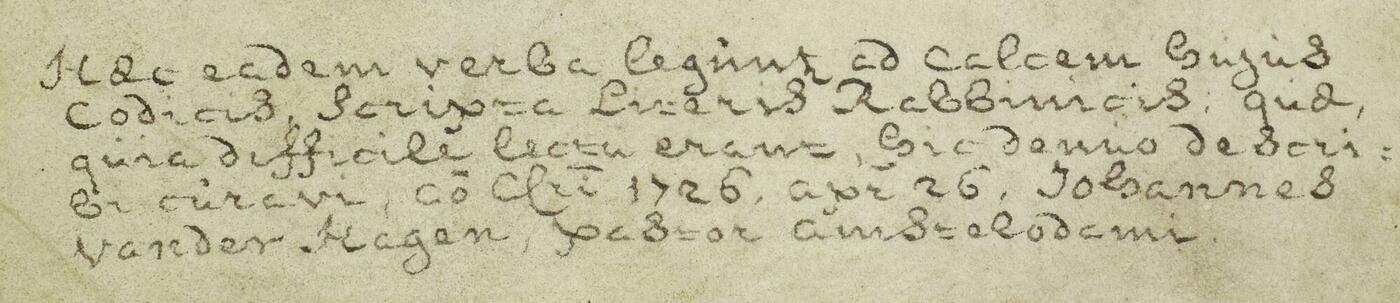 Hæc eadem verba legunt̃ ad calcem hujus
Codicis, scripta Literis Rabbinicis: quæ,
quia difficilè lectu erant, hic denuo descri:
bi curavi, aō Chr̄i 1726, apr̄ 26, Johannes
vander Hagen, pastor Amstelodami.